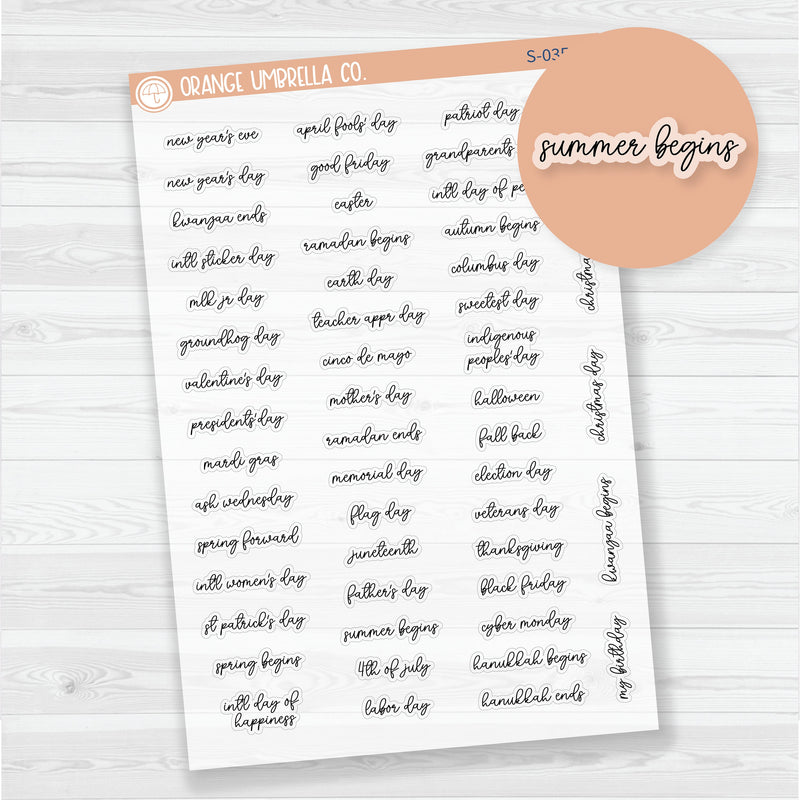 ORANGE UMBRELLA CO.
S-035
summer begins
new year's eve
new year's day
kwanzaa ends
intl sticker day
mlk jr day
groundhog day
valentine's day
presidents' day
mardi gras
ash wednesday
spring forward
intl women's day
st patrick's day
spring begins
intl day of
happiness
april fools' day
good friday
easter
ramadan begins
earth day
teacher appr day
cinco de mayo
mother's day
ramadan ends
memorial day
flag day
juneteenth
father's day
summer begins
4th of july
labor day
patriot day
grandparents
intl day of
autumn begins
columbus day
sweetest day
indigenous
peoples' day
halloween
fall back
election day
veterans day
thanksgiving
black friday
cyber monday
hanukkah begins
hanukkah ends
christmas
christmas day
kwanzaa begins
my birthday